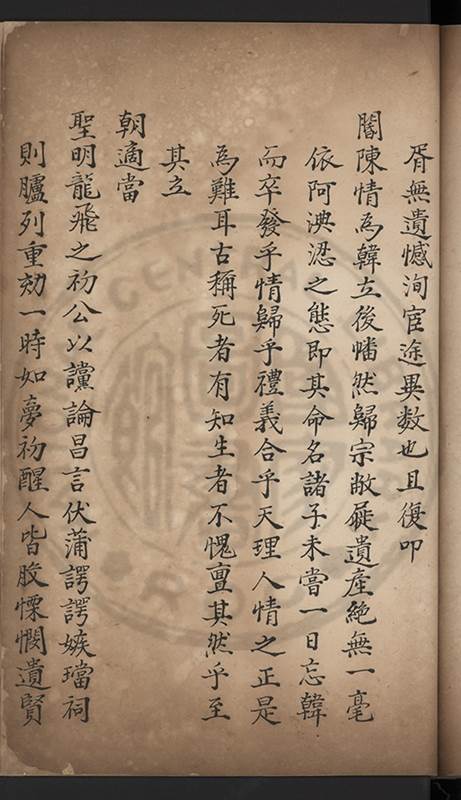 胥無遺憾洵宦途異数也且復叩
閽陳情為韓立後幡然歸宗敝屣遺產絶無一毫
依阿淟涊之態即其命名諸子未嘗一日忘韓
而卒發乎情歸乎禮義合乎天理人情之正是
為難耳古稱死者有知生者不愧亶其然乎至
其立
朝適當
聖明龍飛之初公以讜論昌言伏蒲諤諤嫉璫祠
則臚列重劾一時如夢初醒人皆股慄憫遺賢